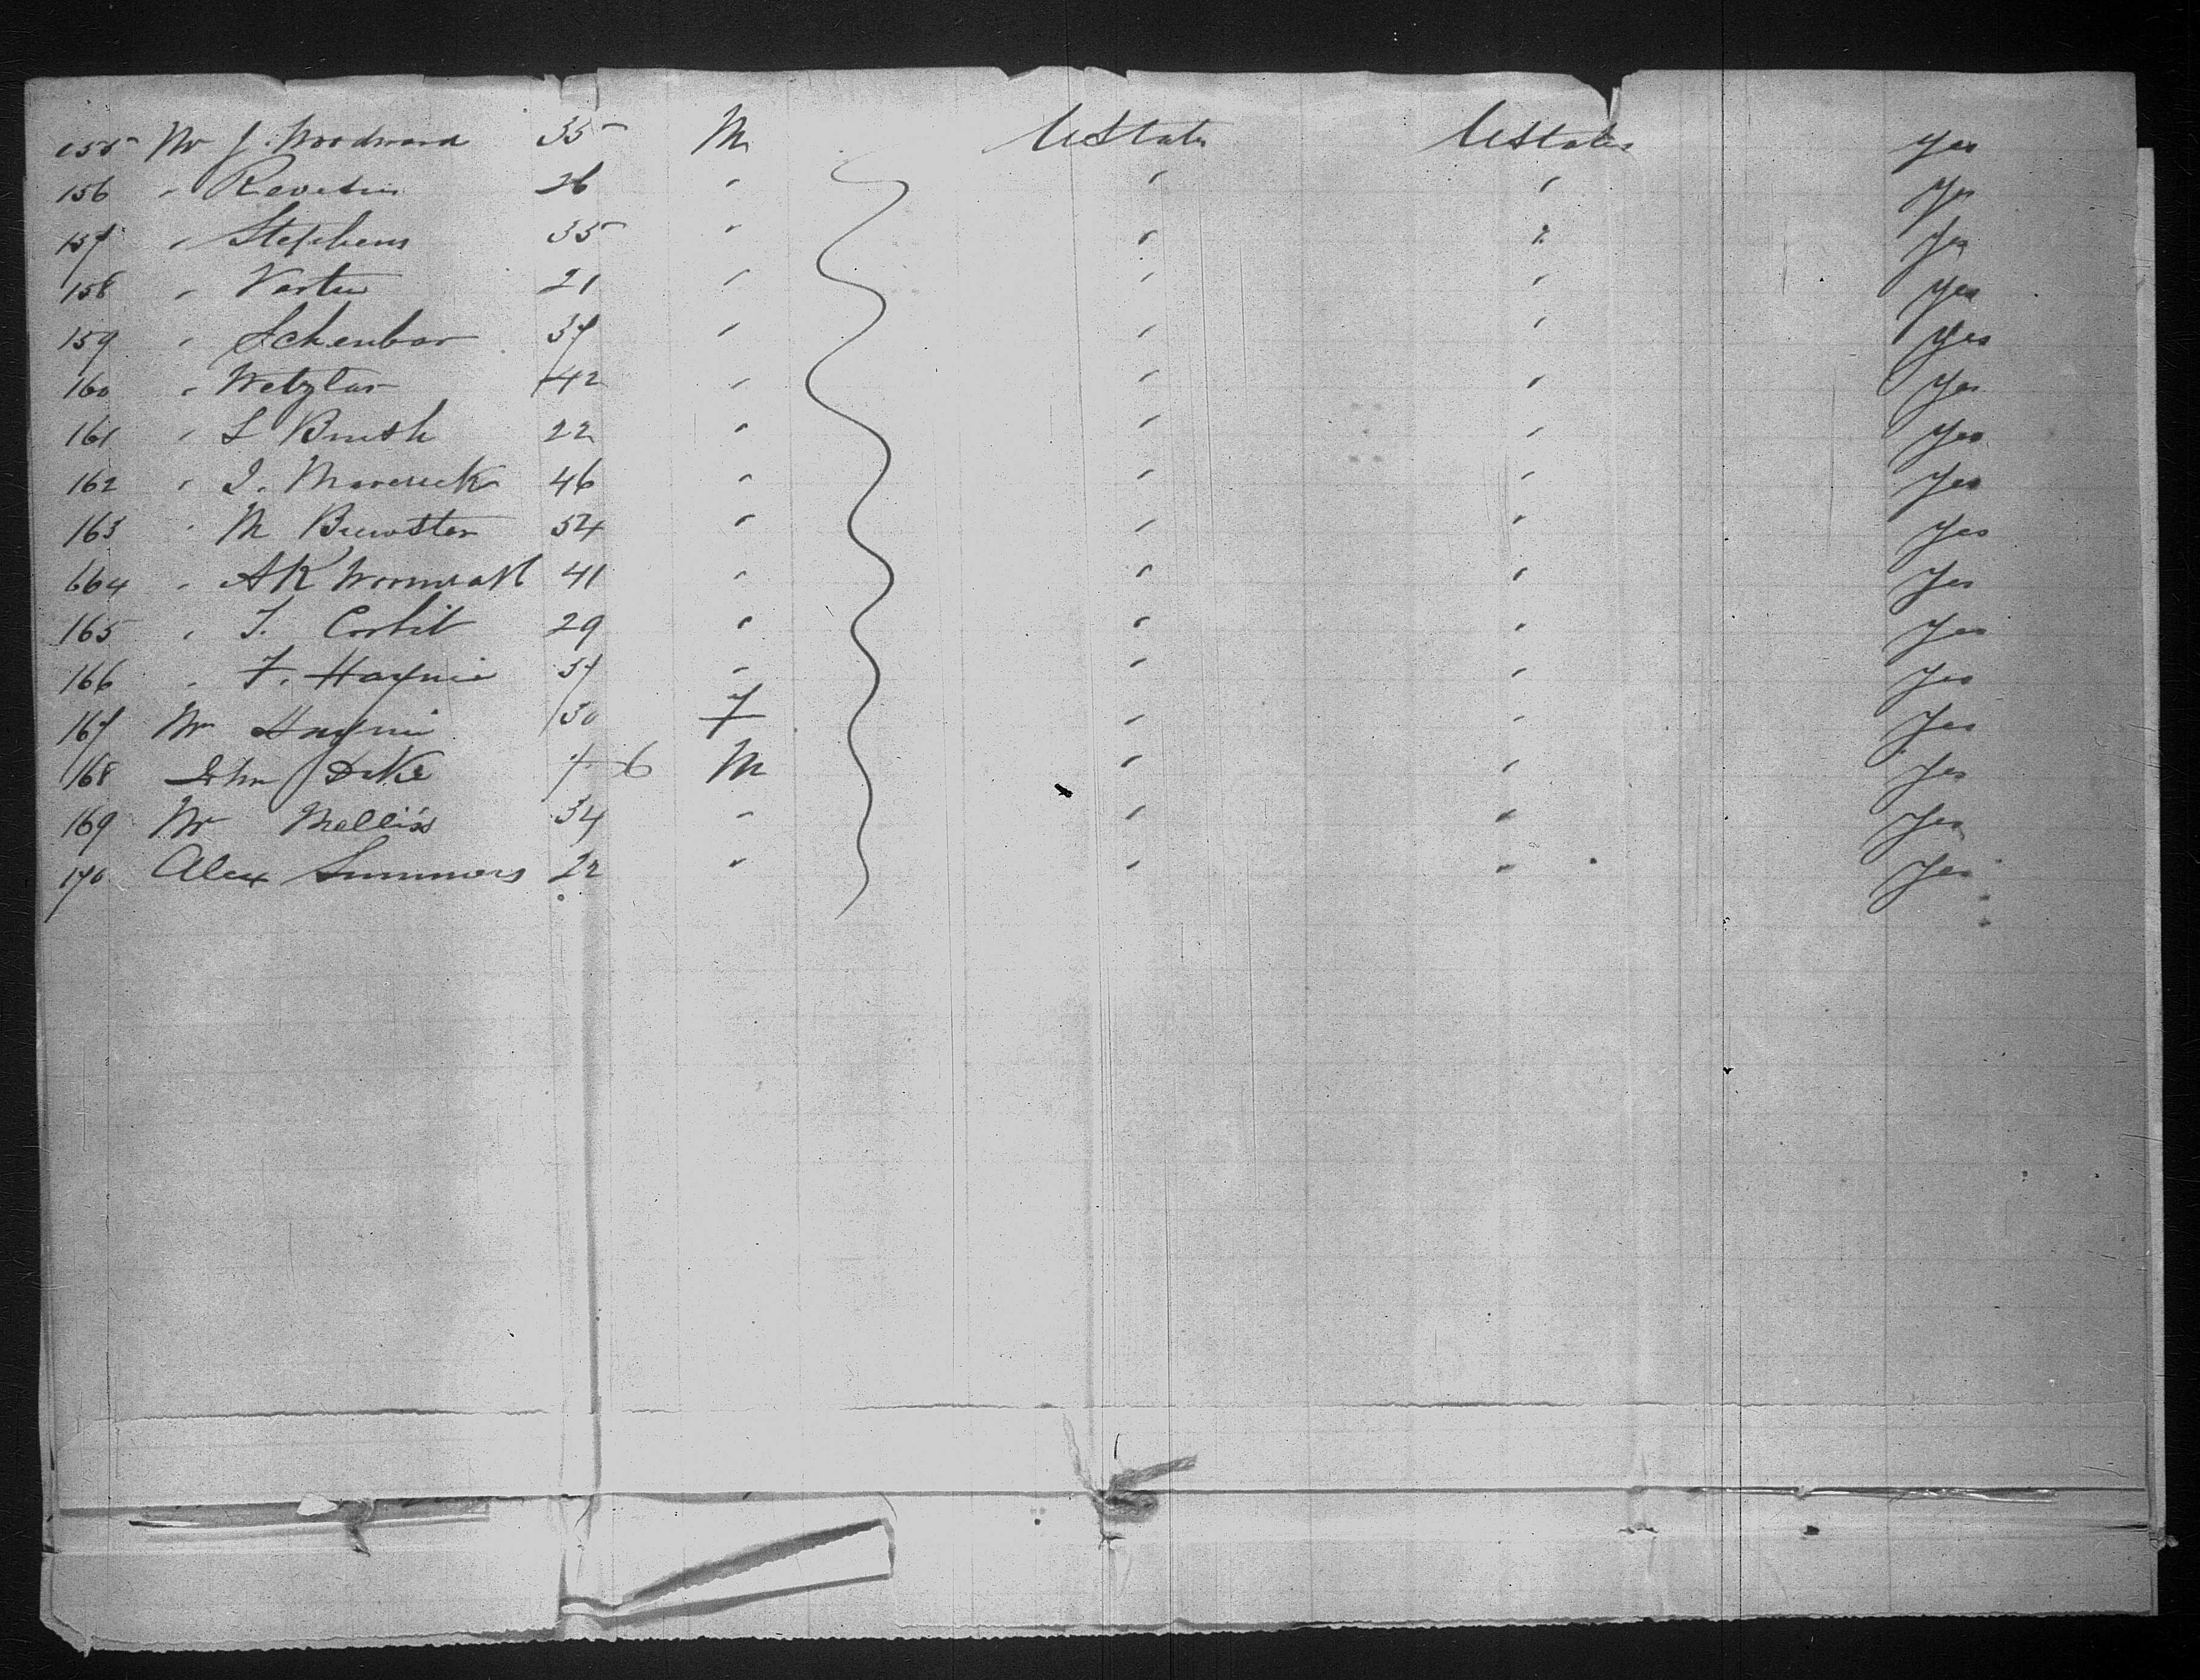 155 Mr J. Woodward 35 M UStates UStates Yes
156 " 26 " " " Yes
157 " Stephens 35 " " " Yes
158 " 21 " " " Yes
159 " Schenbar 37 " " " Yes
160 " Wetzlar 42 " " " Yes
161 " S Brush 22 " " " Yes
162 " J. Maverick 46 " " " Yes
163 " M Brewster 54 " " " Yes
664 " AK 41 " " " Yes
165 " T. Corbit 29 " " " Yes
166 " F. Haynie 37 " " " Yes
167 Mr Haynie 30 F " " Yes
168 John Duke 6 M " " Yes
169 Mr Melliss 34 " " " Yes
170 Alex Summers 22 " " " Yes